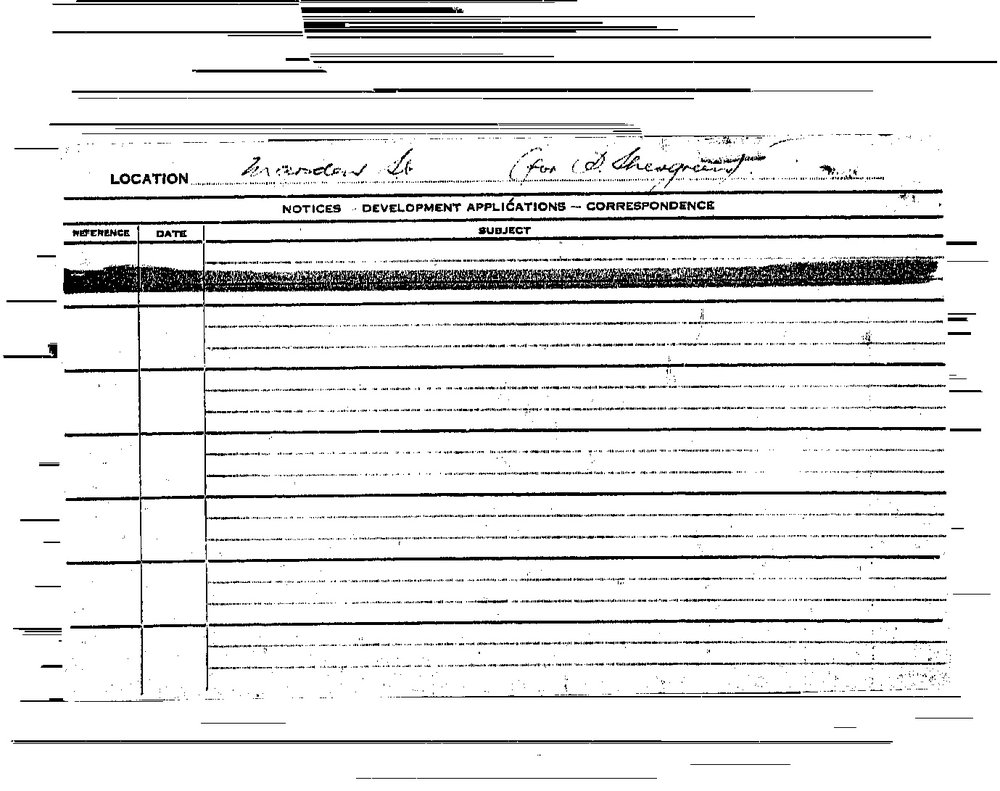 LOCATION Marsden St (for D. Shergreen).
NOTICES - DEVELOPMENT APPLICATIONS — CORRESPONDENCE
REFERENCE DATE SUBJECT